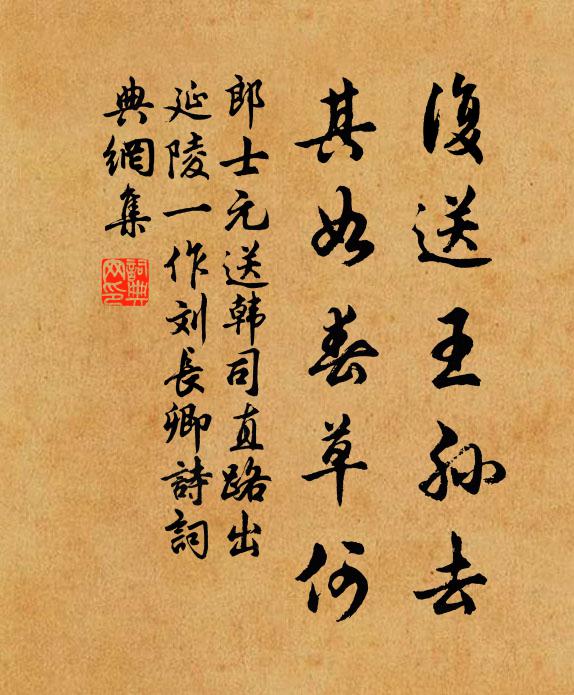 復送王孫去
其如春草何
郎士元送韩司直路出
延陵一作刘長卿詩詞
典網集
詞典網印